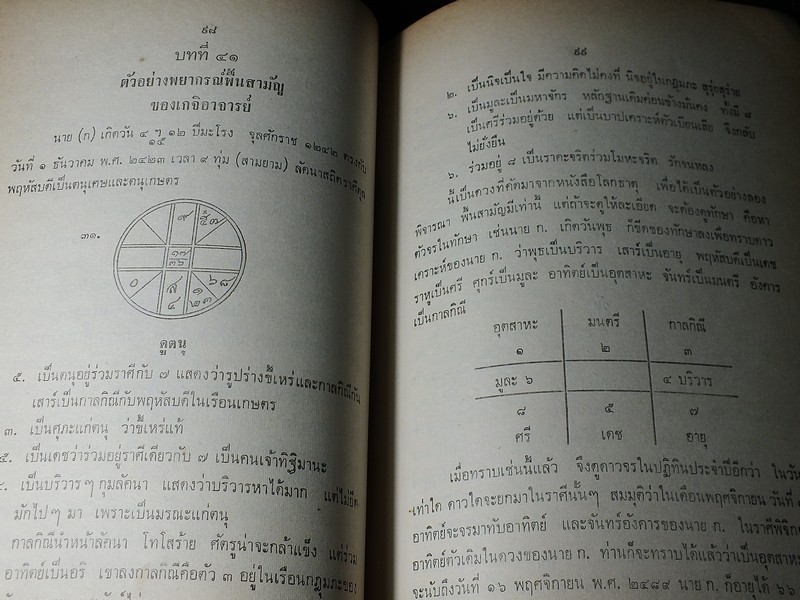 ๙๘
บทที่ ๔๑
ตัวอย่างพยากรณ์พื้นสามัญ
ของเกจิอาจารย์
นาย (ก) เกิดวัน ๔ ๑๒ ปีมะโรง จุลศักราช ๑๒๔๒ ตรงกับ
วันที่ ๑ ธันวาคม พ.ศ. ๒๔๒๓ เวลา ๙ ทุ่ม (สามยาม) ลัคนาสถิตราศีตุล
พฤหัสบดีเป็นตนุเศษและตนุเกษตร
๓๑.
๙
๗
๑๗
๓๖
๐
ส
๔
๑
๒ ๓
๖ ๘
ดูตนุ
๕. เป็นตนุอยู่ร่วมราศีกับ ๗ แสดงว่ารูปร่างขี้เหร่และกาลกิณีกัน
เสาร์เป็นกาลกิณีกับพฤหัสบดีในเรือนเกษตร
๓. เป็นศุภะแก่ตนุ ว่าขี้เหร่แท้
๕. เป็นเดชว่าร่วมอยู่ราศีเดียวกับ ๗ เป็นคนเจ้าทิฐิมานะ
๔. เป็นบริวาร ๆ กุมลัคนา แสดงว่าบริวารหาได้มาก แต่ไม่ยืด
มักไป ๆ มา เพราะเป็นมรณะแก่ตนุ
กาลกิณีนำหน้าลัคนา โทโสร้าย ศัตรูน่าจะกล้าแข็ง แต่ร่วม
อาทิตย์เป็นอริ เขาลงกาลกิณีคือตัว ๓ อยู่ในเรือนกฎุมภะของ
๙๙
๒. เป็นนิจเป็นใจ มีความคิดไม่คงที่ นิจอยู่ในกฎุมภะ สุรุ่ยสุร่าย
๖. เป็นมูละเป็นมหาจักร หลักฐานเดิมค่อนข้างมั่นคง ทั้งมี ๘
เป็นศรีร่วมอยู่ด้วย แต่เป็นบาปเคราะห์ตัวเบียนเสีย จึงกลับ
ไม่ยั่งยืน
๖. ร่วมอยู่ ๘ เป็นราคะจริตร่วมโมหะจริต รักจนหลง
นี้เป็นดวงที่คัดมาจากหนังสือโลกธาตุ เพื่อได้เป็นตัวอย่างลอง
พิจารณา พื้นสามัญมีเท่านี้ แต่ถ้าจะดูให้ละเอียด จะต้องดูทักษา คือหา
ตัวจรในทักษา เช่นนาย ก. เกิดวันพุธ ก็ขีดช่องทักษาลงเพื่อทราบดาว
เคราะห์ของนาย ก. ว่าพุธเป็นบริวาร เสาร์เป็นอายุ พฤหัสบดีเป็นเดช
ราหูเป็นศรี ศุกร์เป็นมูละ อาทิตย์เป็นอุตสาหะ จันทร์เป็นมนตรี อังคาร
เป็นกาลกิณี
อุตสาหะ มนตรี กาลกิณี
๑ ๒ ๓
มูละ ๖ ๔ บริวาร
๘ ๕ ๗
ศรี เดช อายุ
เมื่อทราบเช่นนี้แล้ว จึงดูดาวจรในปฏิทินประจำปีอีกว่า ในวัน
เท่าใด ดาวใดจะยกมาในราศีนั้น ๆ สมมุติว่าในเดือนพฤศจิกายน วันที่
อาทิตย์จะจรมาทับอาทิตย์ และจันทร์อังคารของนาย ก. ในราศีพิจิก
อาทิตย์ตัวเดิมในดวงของนาย ก. ท่านก็จะทราบได้แล้วว่าเป็นอุตสาหะ
จะนับถึงวันที่ ๑๖ พฤศจิกายน พ.ศ. ๒๔๘๙ นาย ก. ก็อายุได้ ๖๖